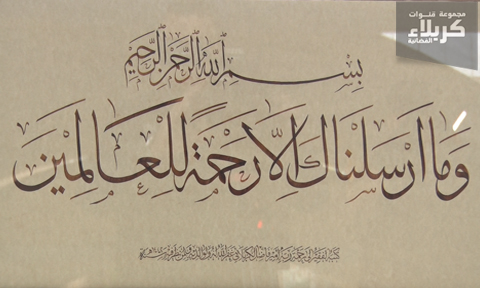 مجموعة قنوات
كربلاء
الفضائية
بِسْمِ اللَّهِ الرَّحْمَٰنِ الرَّحِيمِ
وَمَا أَرْسَلْنَاكَ إِلَّا رَحْمَةً لِلْعَالَمِينَ